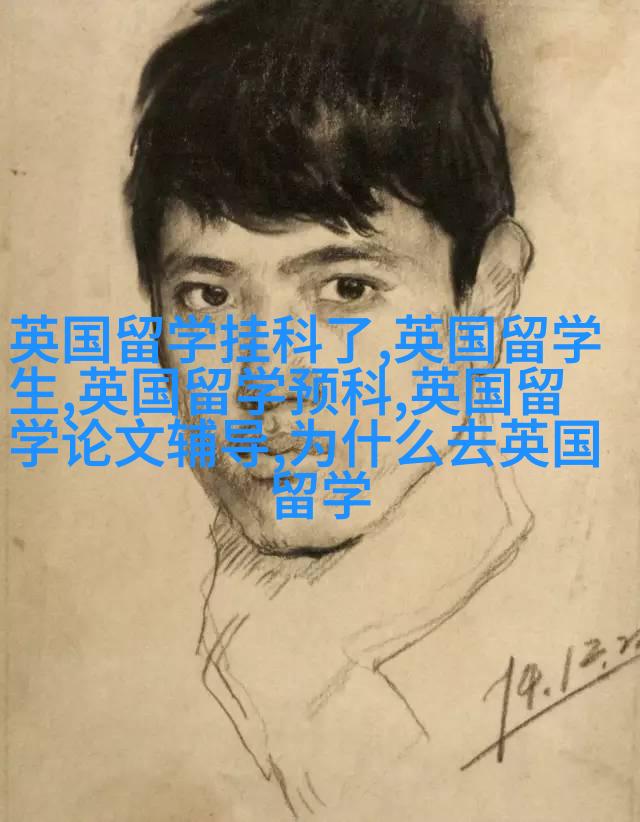 英国留学挂科了,英国留学
生,英国留学预科,英国留
学论文辅导,为什么去英国
留学